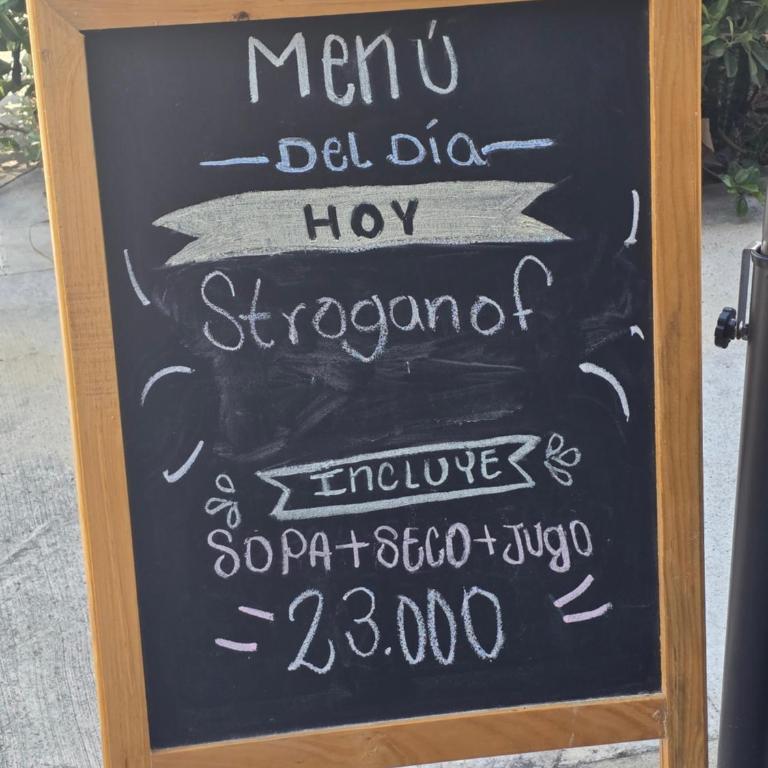 Menú
DEL DÍA
HOY
Stroganof
INCLUYE
SOPA+SECO+JUGO
23.000